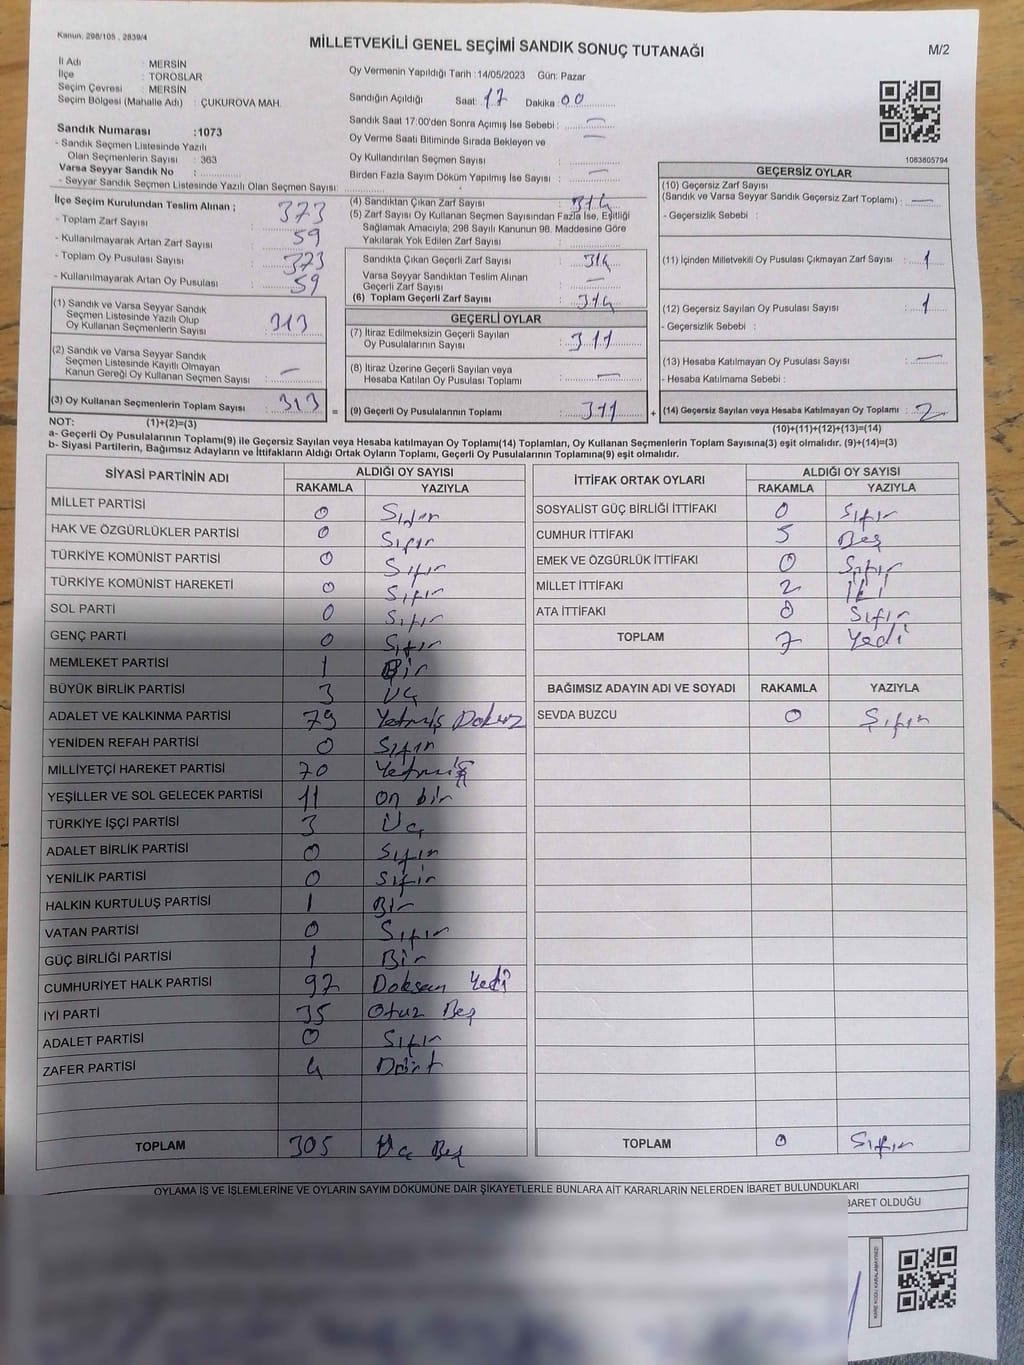 Kanun, 298/105 , 2839/4
MİLLETVEKİLİ GENEL SEÇİMİ SANDIK SONUÇ TUTANAĞI
M/2
İl Adı : MERSİN
İlçe : TOROSLAR
Seçim Çevresi : MERSİN
Seçim Bölgesi (Mahalle Adı) : ÇUKUROVA MAH.
Sandık Numarası :1073
- Sandık Seçmen Listesinde Yazılı
Olan Seçmenlerin Sayısı : 363
Varsa Seyyar Sandık No :
- Seyyar Sandık Seçmen Listesinde Yazılı Olan Seçmen Sayısı:
Oy Vermenin Yapıldığı Tarih :14/05/2023 Gün: Pazar
Sandığın Açıldığı Saat: 17 Dakika 00
Sandık Saat 17:00'den Sonra Açılmış İse Sebebi : —
Oy Verme Saati Bitiminde Sırada Bekleyen ve —
Oy Kullandırılan Seçmen Sayısı :
Birden Fazla Sayım Döküm Yapılmış İse Sayısı : —
1063805794
İlçe Seçim Kurulundan Teslim Alınan ;
- Toplam Zarf Sayısı : 373
- Kullanılmayarak Artan Zarf Sayısı : 59
- Toplam Oy Pusulası Sayısı : 373
- Kullanılmayarak Artan Oy Pusulası : 59
(1) Sandık ve Varsa Seyyar Sandık
Seçmen Listesinde Yazılı Olup
Oy Kullanan Seçmenlerin Sayısı : 313
(2) Sandık ve Varsa Seyyar Sandık
Seçmen Listesinde Kayıtlı Olmayan
Kanun Gereği Oy Kullanan Seçmen Sayısı : —
(3) Oy Kullanan Seçmenlerin Toplam Sayısı : 313 =
(4) Sandıktan Çıkan Zarf Sayısı : 314
(5) Zarf Sayısı Oy Kullanan Seçmen Sayısından Fazla İse, Eşitliği
Sağlamak Amacıyla, 298 Sayılı Kanunun 98. Maddesine Göre
Yakılarak Yok Edilen Zarf Sayısı :
Sandıkta Çıkan Geçerli Zarf Sayısı : 314
Varsa Seyyar Sandıktan Teslim Alınan
Geçerli Zarf Sayısı : —
(6) Toplam Geçerli Zarf Sayısı : 314
GEÇERLİ OYLAR
(7) İtiraz Edilmeksizin Geçerli Sayılan
Oy Pusulalarının Sayısı : 311
(8) İtiraz Üzerine Geçerli Sayılan veya
Hesaba Katılan Oy Pusulası Toplamı : —
(9) Geçerli Oy Pusulalarının Toplamı : 311 +
GEÇERSİZ OYLAR
(10) Geçersiz Zarf Sayısı
(Sandık ve Varsa Seyyar Sandık Geçersiz Zarf Toplamı) : —
- Geçersizlik Sebebi :
(11) İçinden Milletvekili Oy Pusulası Çıkmayan Zarf Sayısı : 1
(12) Geçersiz Sayılan Oy Pusulası Sayısı : 1
- Geçersizlik Sebebi :
(13) Hesaba Katılmayan Oy Pusulası Sayısı : —
- Hesaba Katılmama Sebebi :
(14) Geçersiz Sayılan veya Hesaba Katılmayan Oy Toplamı : 2
NOT: (1)+(2)=(3)
(10)+(11)+(12)+(13)=(14)
a- Geçerli Oy Pusulalarının Toplamı(9) ile Geçersiz Sayılan veya Hesaba katılmayan Oy Toplamı(14) Toplamları, Oy Kullanan Seçmenlerin Toplam Sayısına(3) eşit olmalıdır. (9)+(14)=(3)
b- Siyasi Partilerin, Bağımsız Adayların ve İttifakların Aldığı Ortak Oyların Toplamı, Geçerli Oy Pusulalarının Toplamına(9) eşit olmalıdır.
SİYASİ PARTİNİN ADI ALDIĞI OY SAYISI
RAKAMLA YAZIYLA
MİLLET PARTİSİ 0 Sıfır
HAK VE ÖZGÜRLÜKLER PARTİSİ 0 Sıfır
TÜRKİYE KOMÜNİST PARTİSİ 0 Sıfır
TÜRKİYE KOMÜNİST HAREKETİ 0 Sıfır
SOL PARTİ 0 Sıfır
GENÇ PARTİ 0 Sıfır
MEMLEKET PARTİSİ 1 Bir
BÜYÜK BİRLİK PARTİSİ 3 Üç
ADALET VE KALKINMA PARTİSİ 79 Yetmiş Dokuz
YENİDEN REFAH PARTİSİ 0 Sıfır
MİLLİYETÇİ HAREKET PARTİSİ 70 Yetmiş
YEŞİLLER VE SOL GELECEK PARTİSİ 11 On bir
TÜRKİYE İŞÇİ PARTİSİ 3 Üç
ADALET BİRLİK PARTİSİ 0 Sıfır
YENİLİK PARTİSİ 0 Sıfır
HALKIN KURTULUŞ PARTİSİ 1 Bir
VATAN PARTİSİ 0 Sıfır
GÜÇ BİRLİĞİ PARTİSİ 1 Bir
CUMHURİYET HALK PARTİSİ 97 Doksan Yedi
İYİ PARTİ 35 Otuz Beş
ADALET PARTİSİ 0 Sıfır
ZAFER PARTİSİ 4 Dört
TOPLAM 305 Üç Beş
İTTİFAK ORTAK OYLARI ALDIĞI OY SAYISI
RAKAMLA YAZIYLA
SOSYALİST GÜÇ BİRLİĞİ İTTİFAKI 0 Sıfır
CUMHUR İTTİFAKI 5 Beş
EMEK VE ÖZGÜRLÜK İTTİFAKI 0 Sıfır
MİLLET İTTİFAKI 2 İki
ATA İTTİFAKI 0 Sıfır
TOPLAM 7 Yedi
BAĞIMSIZ ADAYIN ADI VE SOYADI RAKAMLA YAZIYLA
SEVDA BUZCU 0 Sıfır
TOPLAM 0 Sıfır
OYLAMA İŞ VE İŞLEMLERİNE VE OYLARIN SAYIM DÖKÜMÜNE DAİR ŞİKAYETLERLE BUNLARA AİT KARARLARIN NELERDEN İBARET BULUNDUKLARI
BARET OLDUĞU
KARE KODU KARALAMAYINIZ!